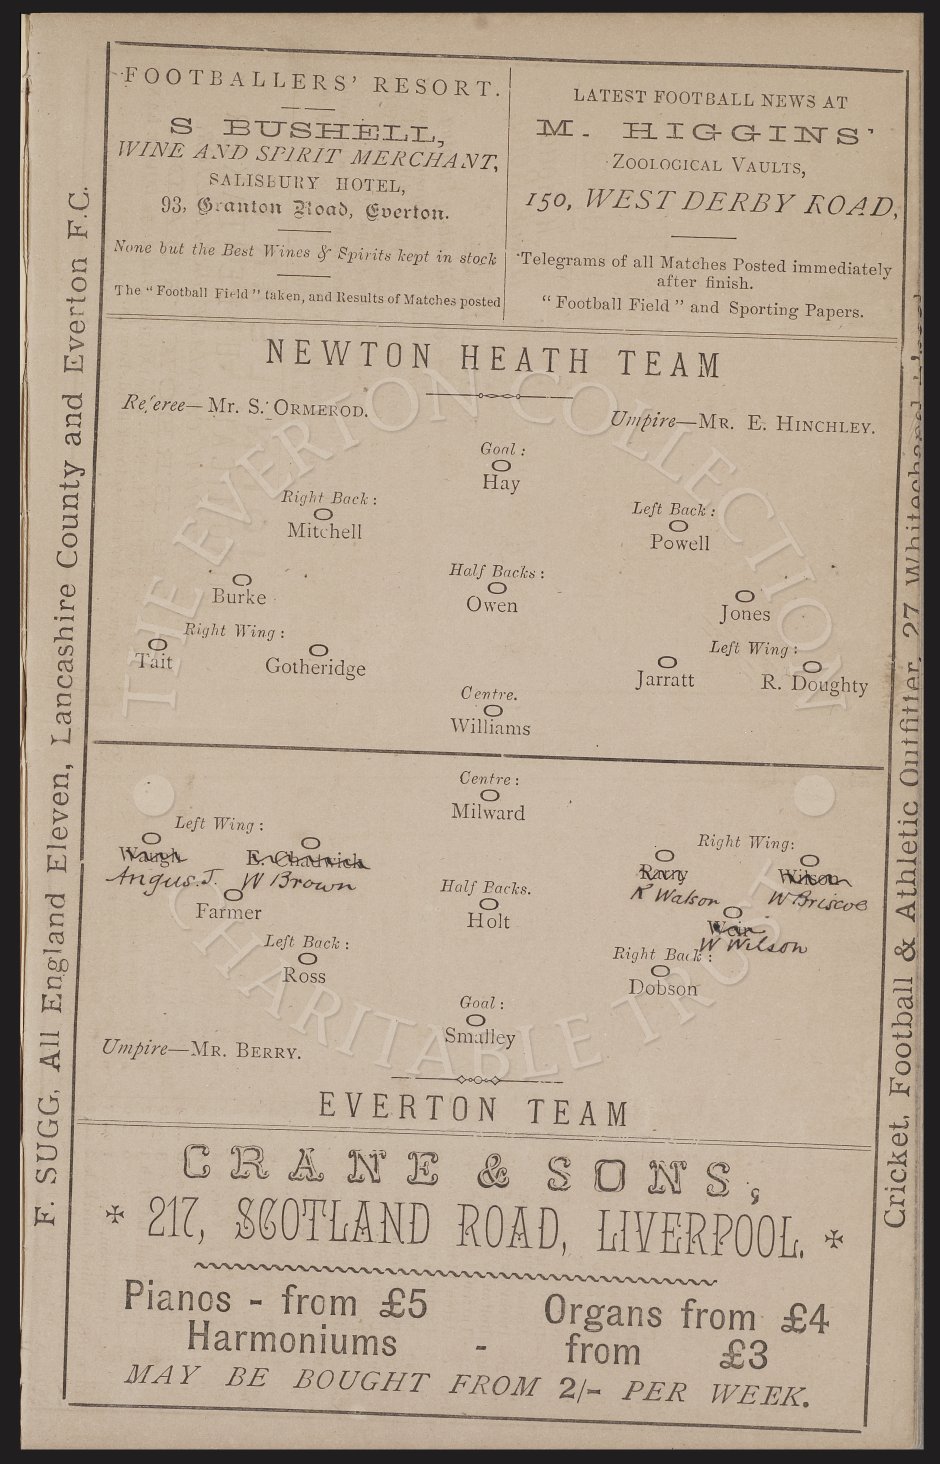 FOOTBALLERS' RESORT.
S BUSHELL,
WINE AND SPIRIT MERCHANT,
SALISBURY HOTEL,
93, Granton Road, Everton.
None but the Best Wines & Spirits kept in stock
The "Football Field" taken, and Results of Matches posted
LATEST FOOTBALL NEWS AT
M. HIGGINS'
ZOOLOGICAL VAULTS,
150, WEST DERBY ROAD,
Telegrams of all Matches Posted immediately
after finish.
"Football Field" and Sporting Papers.
F. SUGG, All England Eleven, Lancashire County and Everton F.C.
Cricket, Football & Athletic Outfitter, 27 Whitechapel
NEWTON HEATH TEAM
Referee—Mr. S. ORMEROD.
Umpire—MR. E. HINCHLEY.
Goal:
Hay
Right Back:
Mitchell
Left Back:
Powell
Half Backs:
Burke
Owen
Jones
Right Wing:
Left Wing:
Tait
Gotheridge
Jarratt
R. Doughty
Centre.
Williams
Centre:
Milward
Left Wing:
Right Wing:
Waugh
E. Chadwick
Rarry
Wilson
Angus. J.
W Brown
R Watson
W Briscoe
Half Backs.
Farmer
Holt
Weir
W Wilson
Left Back:
Right Back:
Ross
Dobson
Goal:
Smalley
Umpire—MR. BERRY.
EVERTON TEAM
CRANE & SONS,
217, SCOTLAND ROAD, LIVERPOOL.
Pianos - from £5
Organs from £4
Harmoniums - from £3
MAY BE BOUGHT FROM 2/- PER WEEK.
THE EVERTON COLLECTION
CHARITABLE TRUST